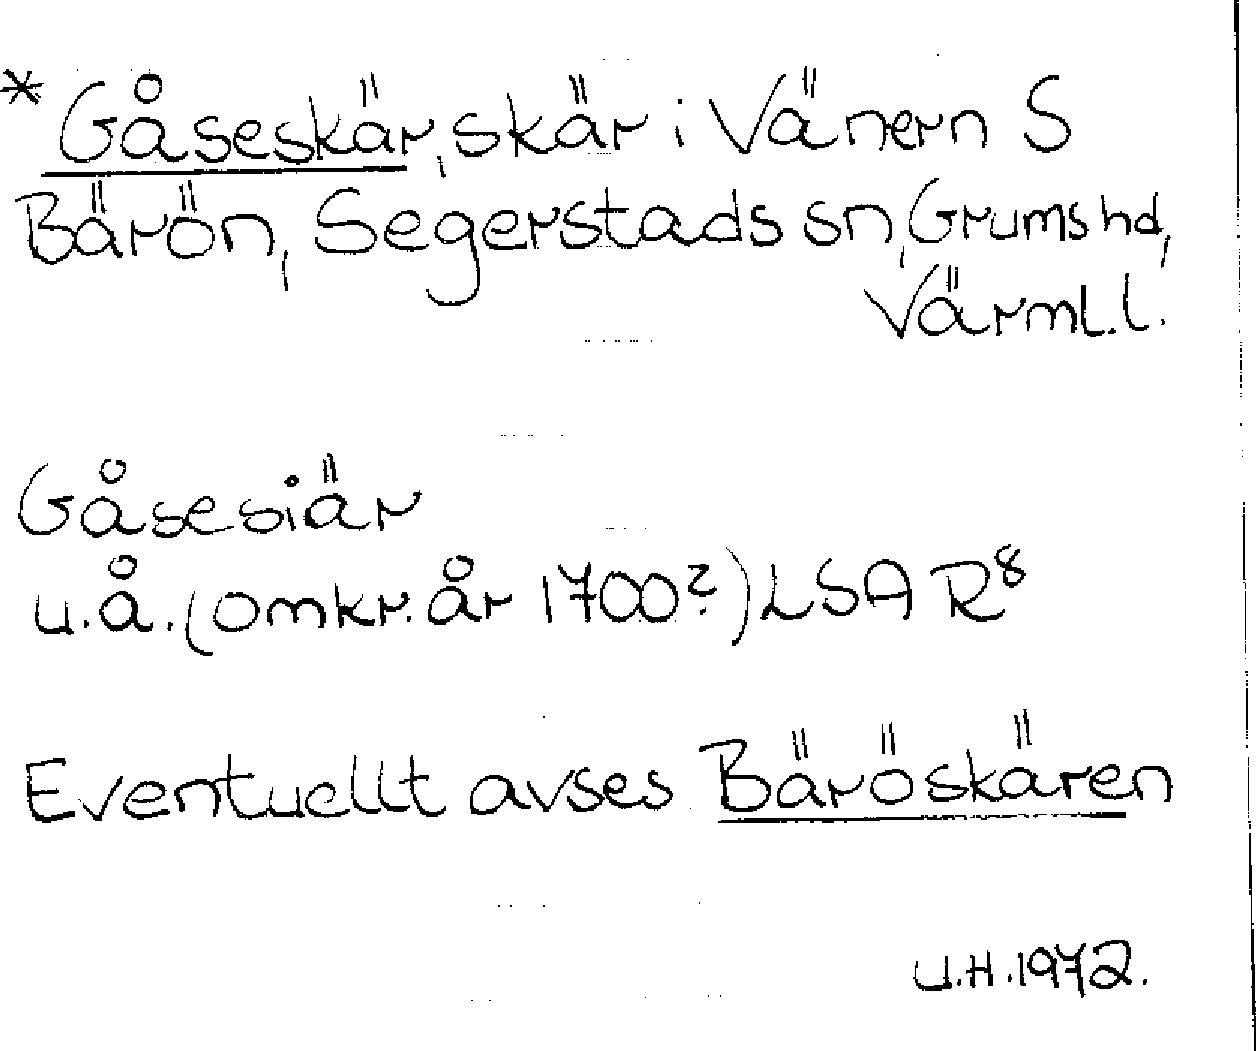 * Gåseskär, skär i Vänern S
Bärön, Segerstads sn, Grums hd,
Värml.l.
Gåsesiär
u.å. (omkr. år 1700?) LSA R⁸
Eventuellt avses Bäröskären
U.H. 1972.